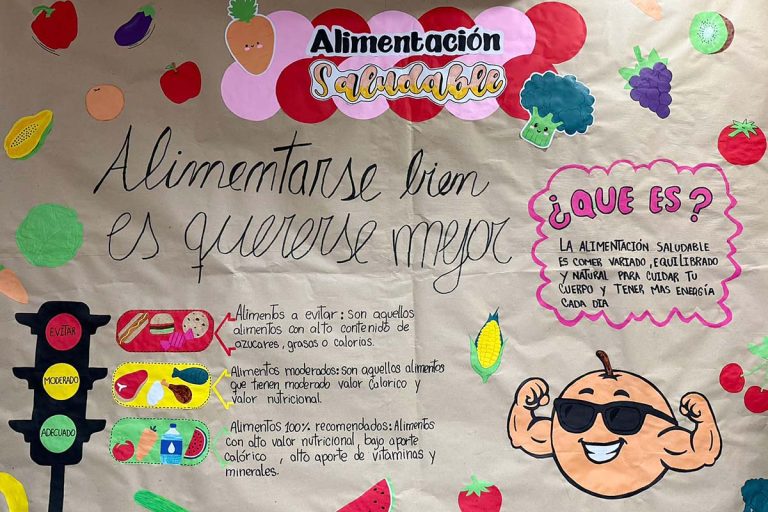 Alimentación
Saludable
Alimentarse bien
es quererse mejor
¿QUE ES?
LA ALIMENTACIÓN SALUDABLE
ES COMER VARIADO, EQUILIBRADO
Y NATURAL PARA CUIDAR TU
CUERPO Y TENER MAS ENERGÍA
CADA DIA
EVITAR
Alimentos a evitar: son aquellos
alimentos con alto contenido de
azucares, grasas o calorias.
MODERADO
Alimentos moderados: son aquellos alimentos
que tienen moderado valor calorico y
valor nutricional.
ADECUADO
Alimentos 100% recomendados: Alimentos
con alto valor nutricional, bajo aporte
calórico, alto aporte de vitaminas y
minerales.